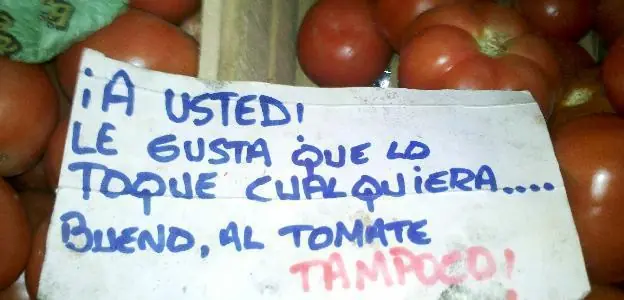 ¡A USTED!
LE GUSTA QUE LO
TOQUE CUALQUIERA....
BUENO, AL TOMATE
TAMPOCO!